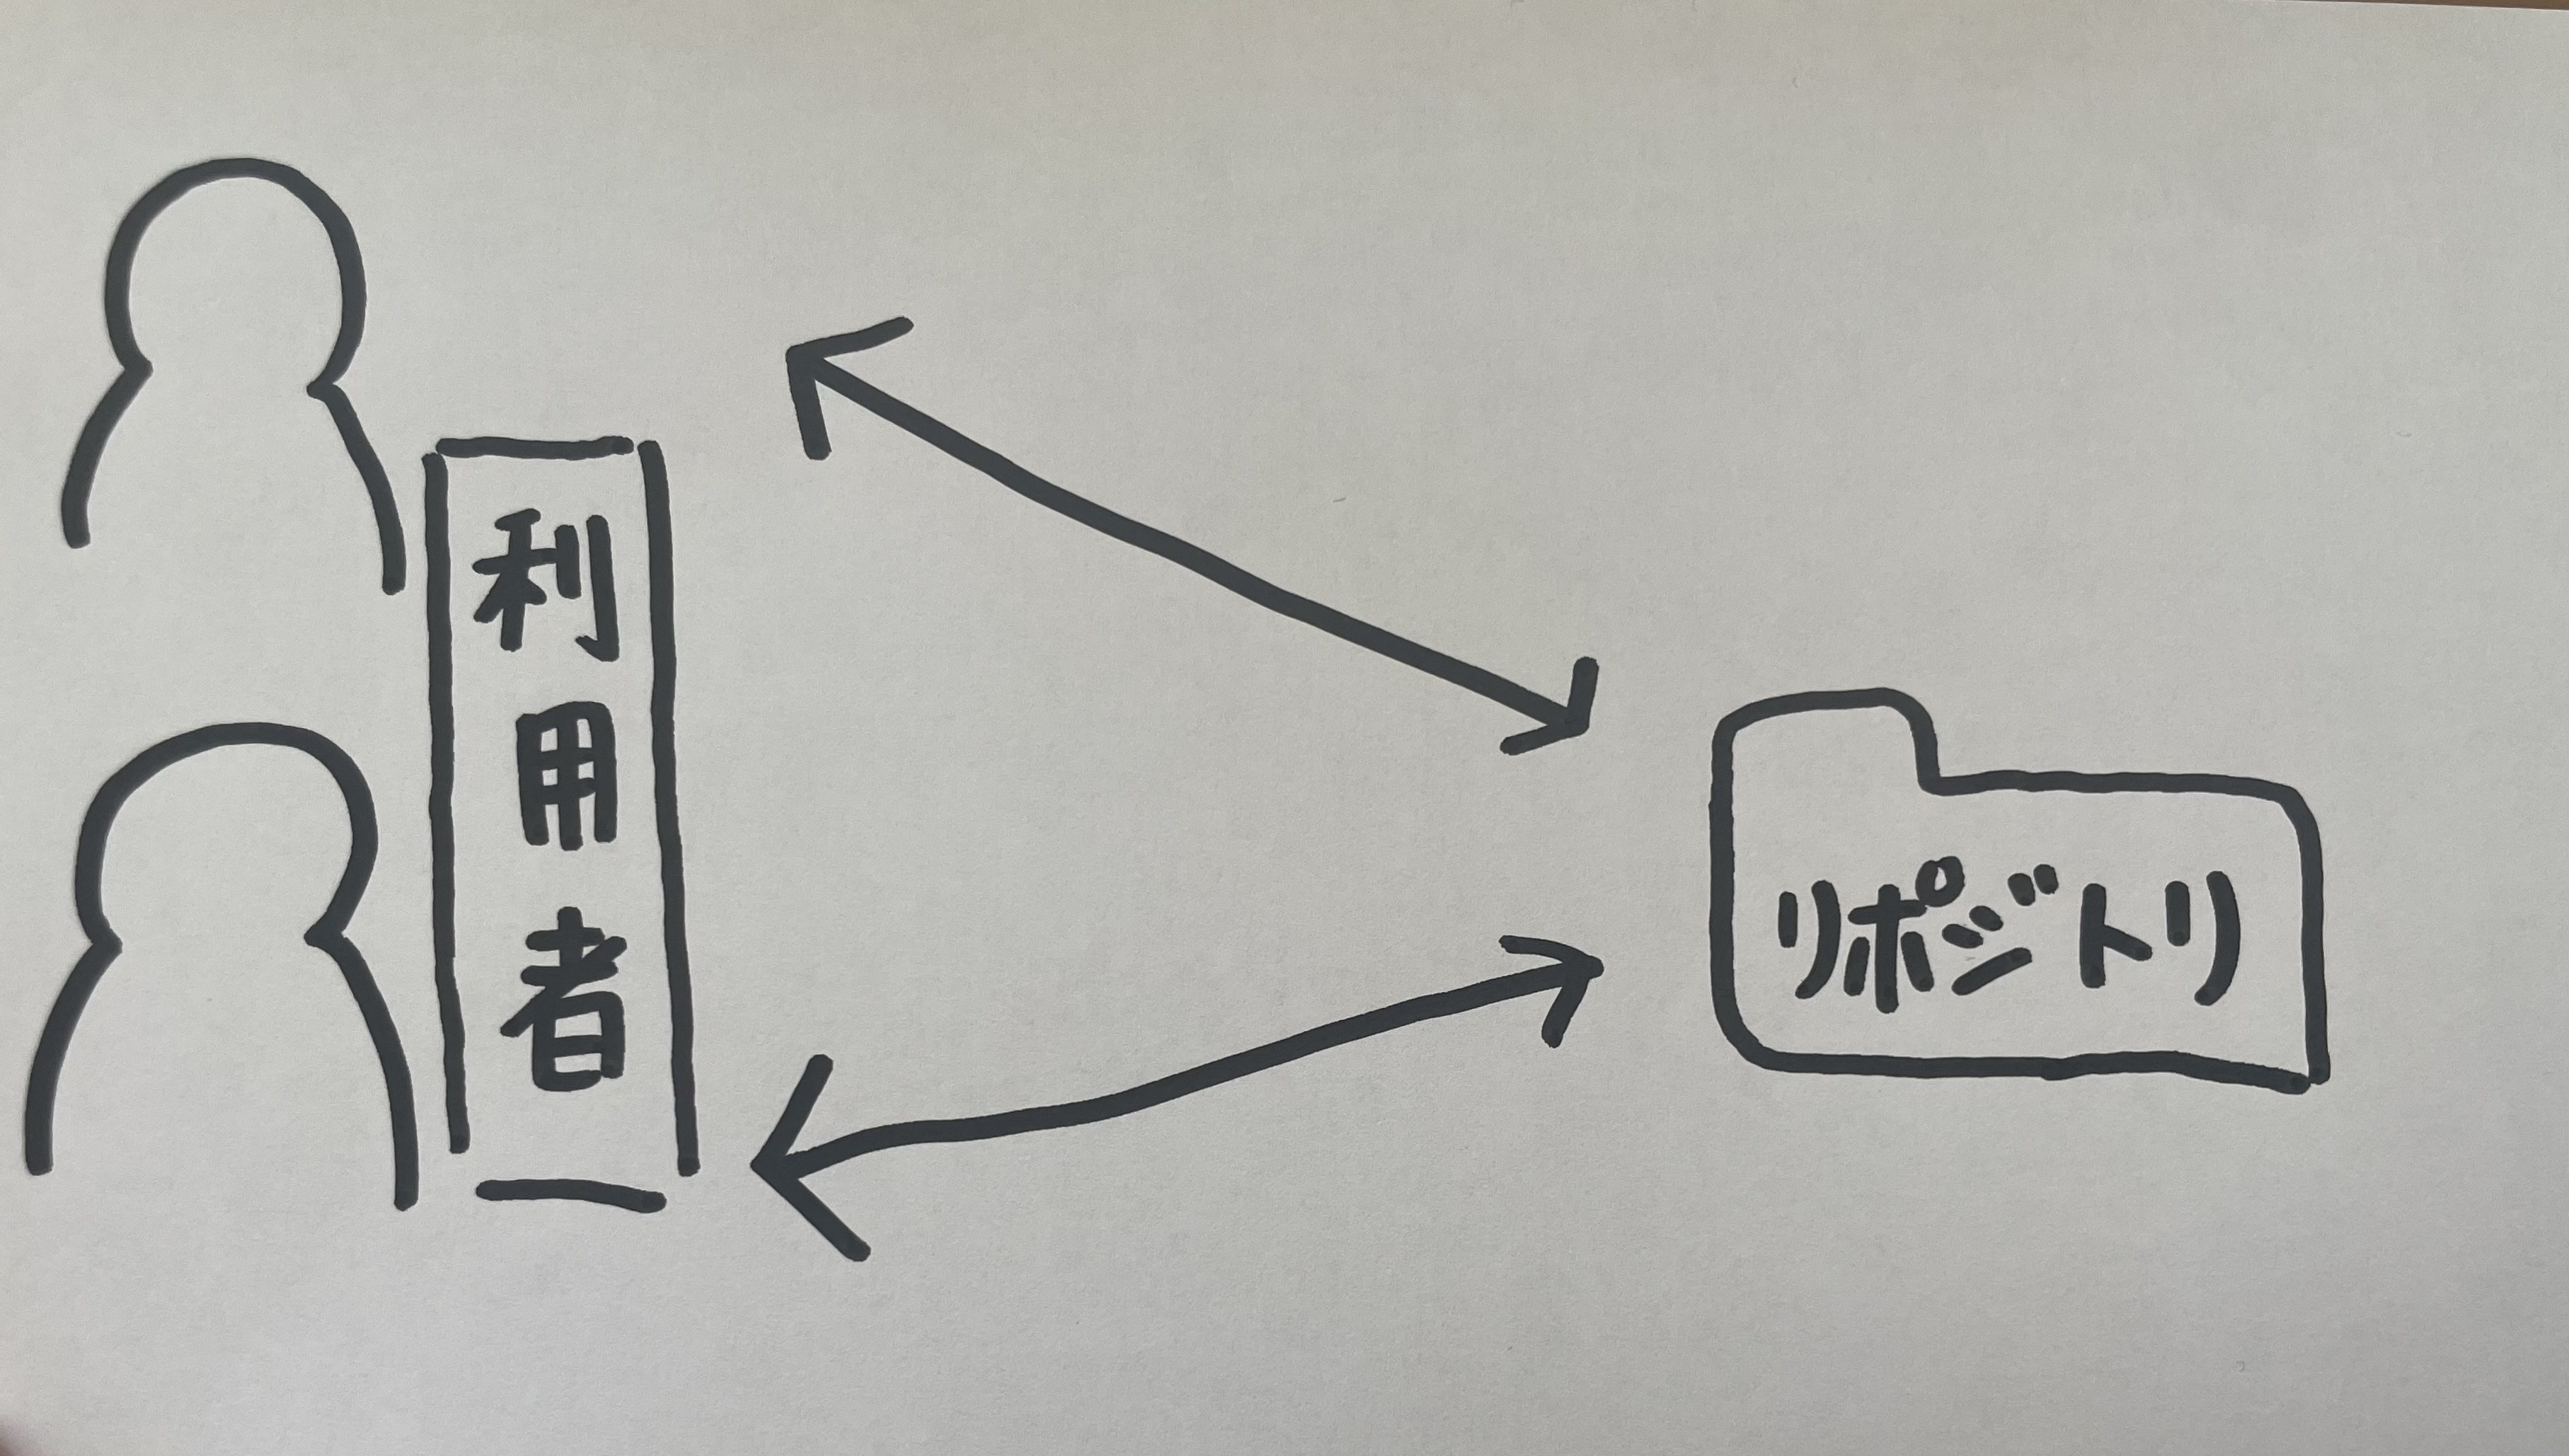 利用者
リポジトリ